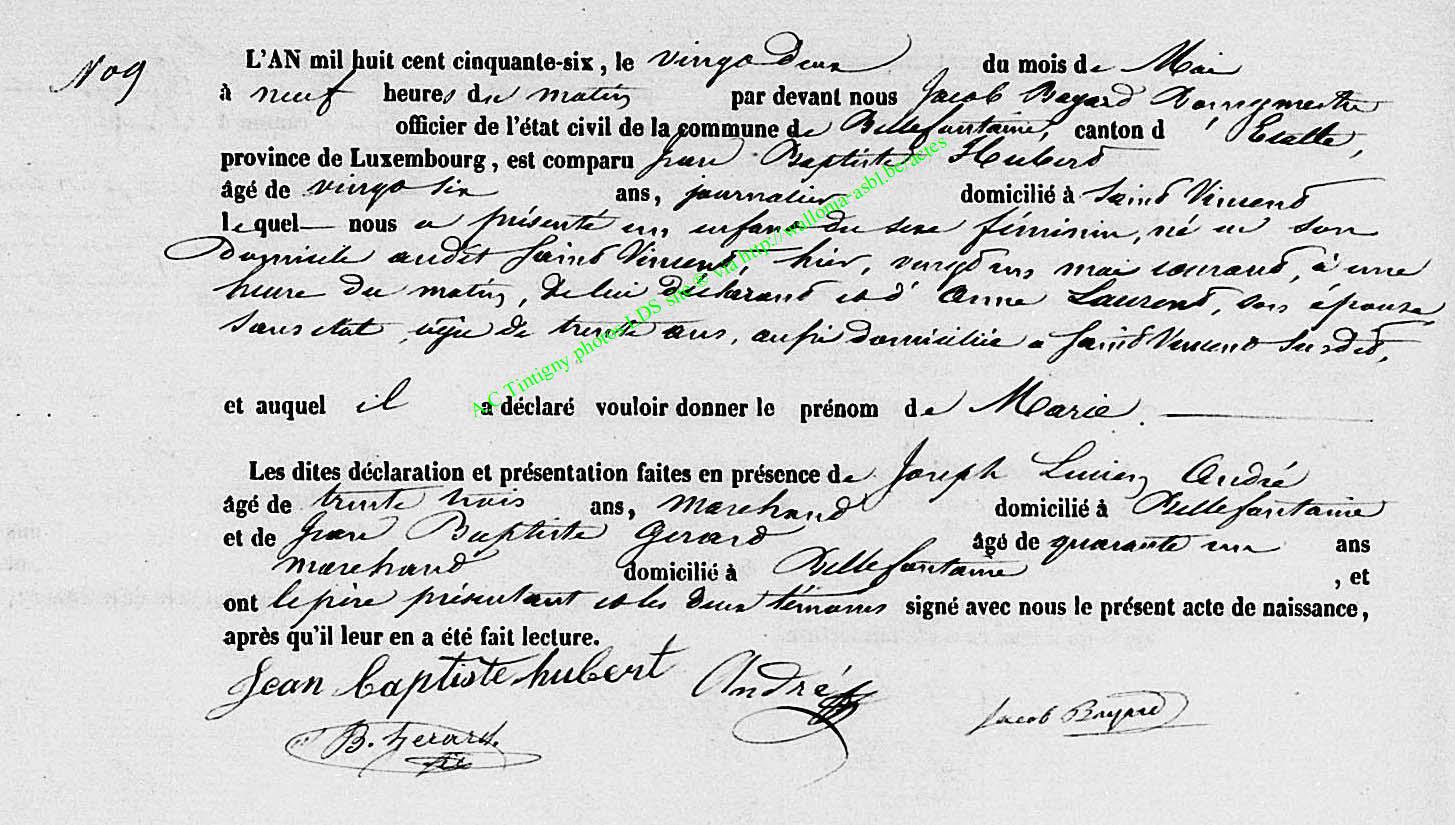 No 9
L'AN mil huit cent cinquante-six, le vingt deux du mois de Mai
à neuf heures du matin par devant nous Jacob Bayard Bourgmestre
officier de l'état civil de la commune de Bellefontaine, canton d'Etalle,
province de Luxembourg, est comparu Jean Baptiste Hubert
âgé de vingt six ans, journalier domicilié à Saint Vincent
lequel nous a présenté un enfant du sexe féminin, né en son
domicile audit Saint Vincent, hier, vingt un mai courant, à une
heure du matin, de lui déclarant et d'Anne Laurent, son épouse
sans état, âgée de trente ans, aussi domiciliée à Saint Vincent susdit,
et auquel il a déclaré vouloir donner le prénom de Marie.
Les dites déclaration et présentation faites en présence de Joseph Lucien André
âgé de trente trois ans, marchand domicilié à Bellefontaine
et de Jean Baptiste Gerard âgé de quarante un ans
marchand domicilié à Bellefontaine, et
ont le père présentant et les deux témoins signé avec nous le présent acte de naissance,
après qu'il leur en a été fait lecture.
Jean baptiste hubert André Jacob Bayard
B. Gerard.
A.C Tintigny, photos LDS site © via http://wallonia-asbl.be/actes